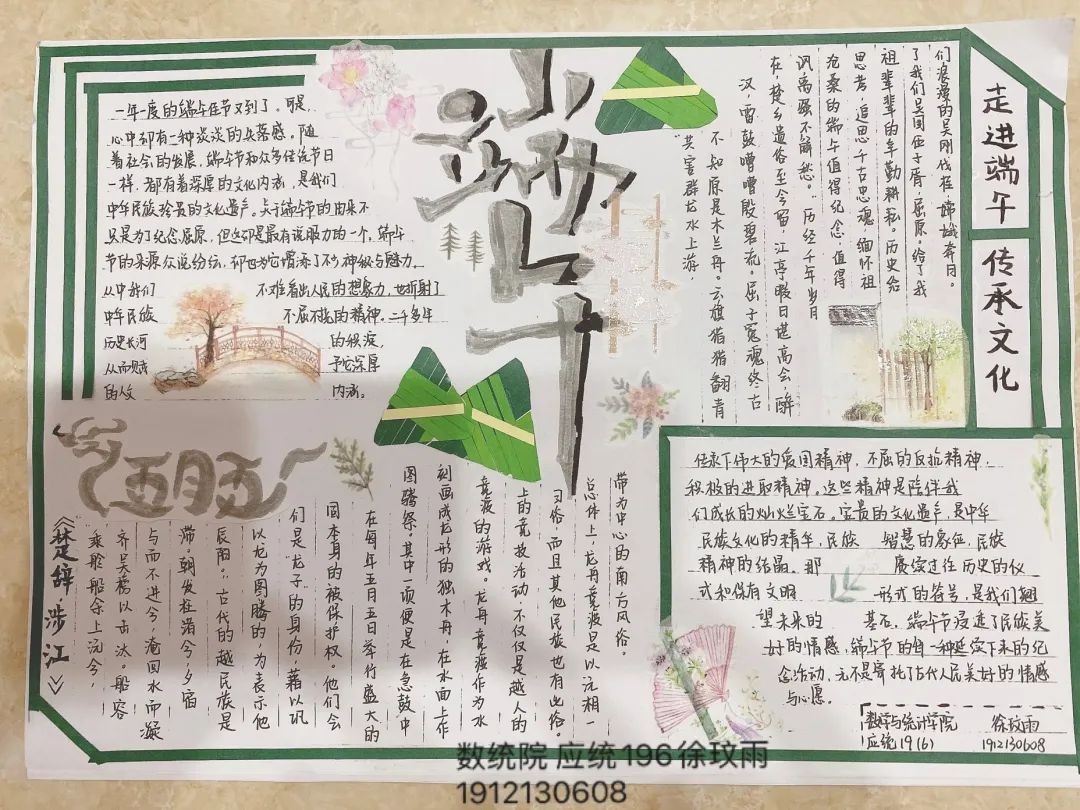 端午
走进端午
传承文化
一年一度的端午佳节又到了。可是
心中却有一种淡淡的失落感。随
着社会的发展,端午节和众多传统节日
一样,都有着深厚的文化内涵,是我们
中华民族珍贵的文化遗产。关于端午节的由来不
只是为了纪念屈原,但这却是最有说服力的一个,端午
节的来源众说纷纭,却也为它增添了不少神秘与魅力,
从中我们 不难看出人民的想象力,也折射了
中华民族 不屈不挠的精神。二千多年
历史长河 的积淀,
从而赋 予它深厚
的人文 内涵。
们浪漫的吴刚伐桂,嫦娥奔月。
了我们吴国伍子胥,屈原,给了我
祖辈辈的辛勤耕耘。历史给
思考,追思千古忠魂,缅怀祖
沧桑的端午值得纪念,值得
汎离骚不解愁。”历经千年岁月
在,楚乡遗俗至今留,江亭暇日堪高会,醉
汉,雷鼓嘈嘈殷碧流。屈子冤魂终古
不知原是木兰舟。云旗猎猎翻青
“共害群龙水上游,
五月五
《楚辞·涉江》
乘舲船余上沅兮,
齐吴榜以击汰。船容
与而不进兮,淹回水而凝
滞。朝发枉渚兮,夕宿
辰阳。”古代的越民族是
以龙为图腾的,为表示他
们是“龙子”的身份,藉以巩
固本身的被保护权。他们会
在每年五月五日举行盛大的
图腾祭,其中一项便是在急鼓中
刻画成龙形的独木舟,在水面上作
竞渡的游戏。龙舟竞渡作为水
上的竞技活动,不仅仅是越人的
习俗,而且其他民族也有此俗。
总体上,龙舟竞渡是以沅湘一
带为中心的南方风俗。
传承下伟大的爱国精神,不屈的反抗精神,
积极的进取精神。这些精神是陪伴我
们成长的灿烂宝石。宝贵的文化遗产,是中华
民族文化的精华,民族 智慧的象征,民族
精神的结晶。那 赓续过往历史的仪
式和保有文明 形式的符号,是我们翘
望未来的 基石。端午节浸透了民族美
好的情感,端午节的每一种延续下来的纪
念活动,无不是寄托了古代人民美好的情感
与心愿。
数学与统计学院 徐玟雨
应统19(6) 1912130608
数统院 应统196徐玟雨
1912130608